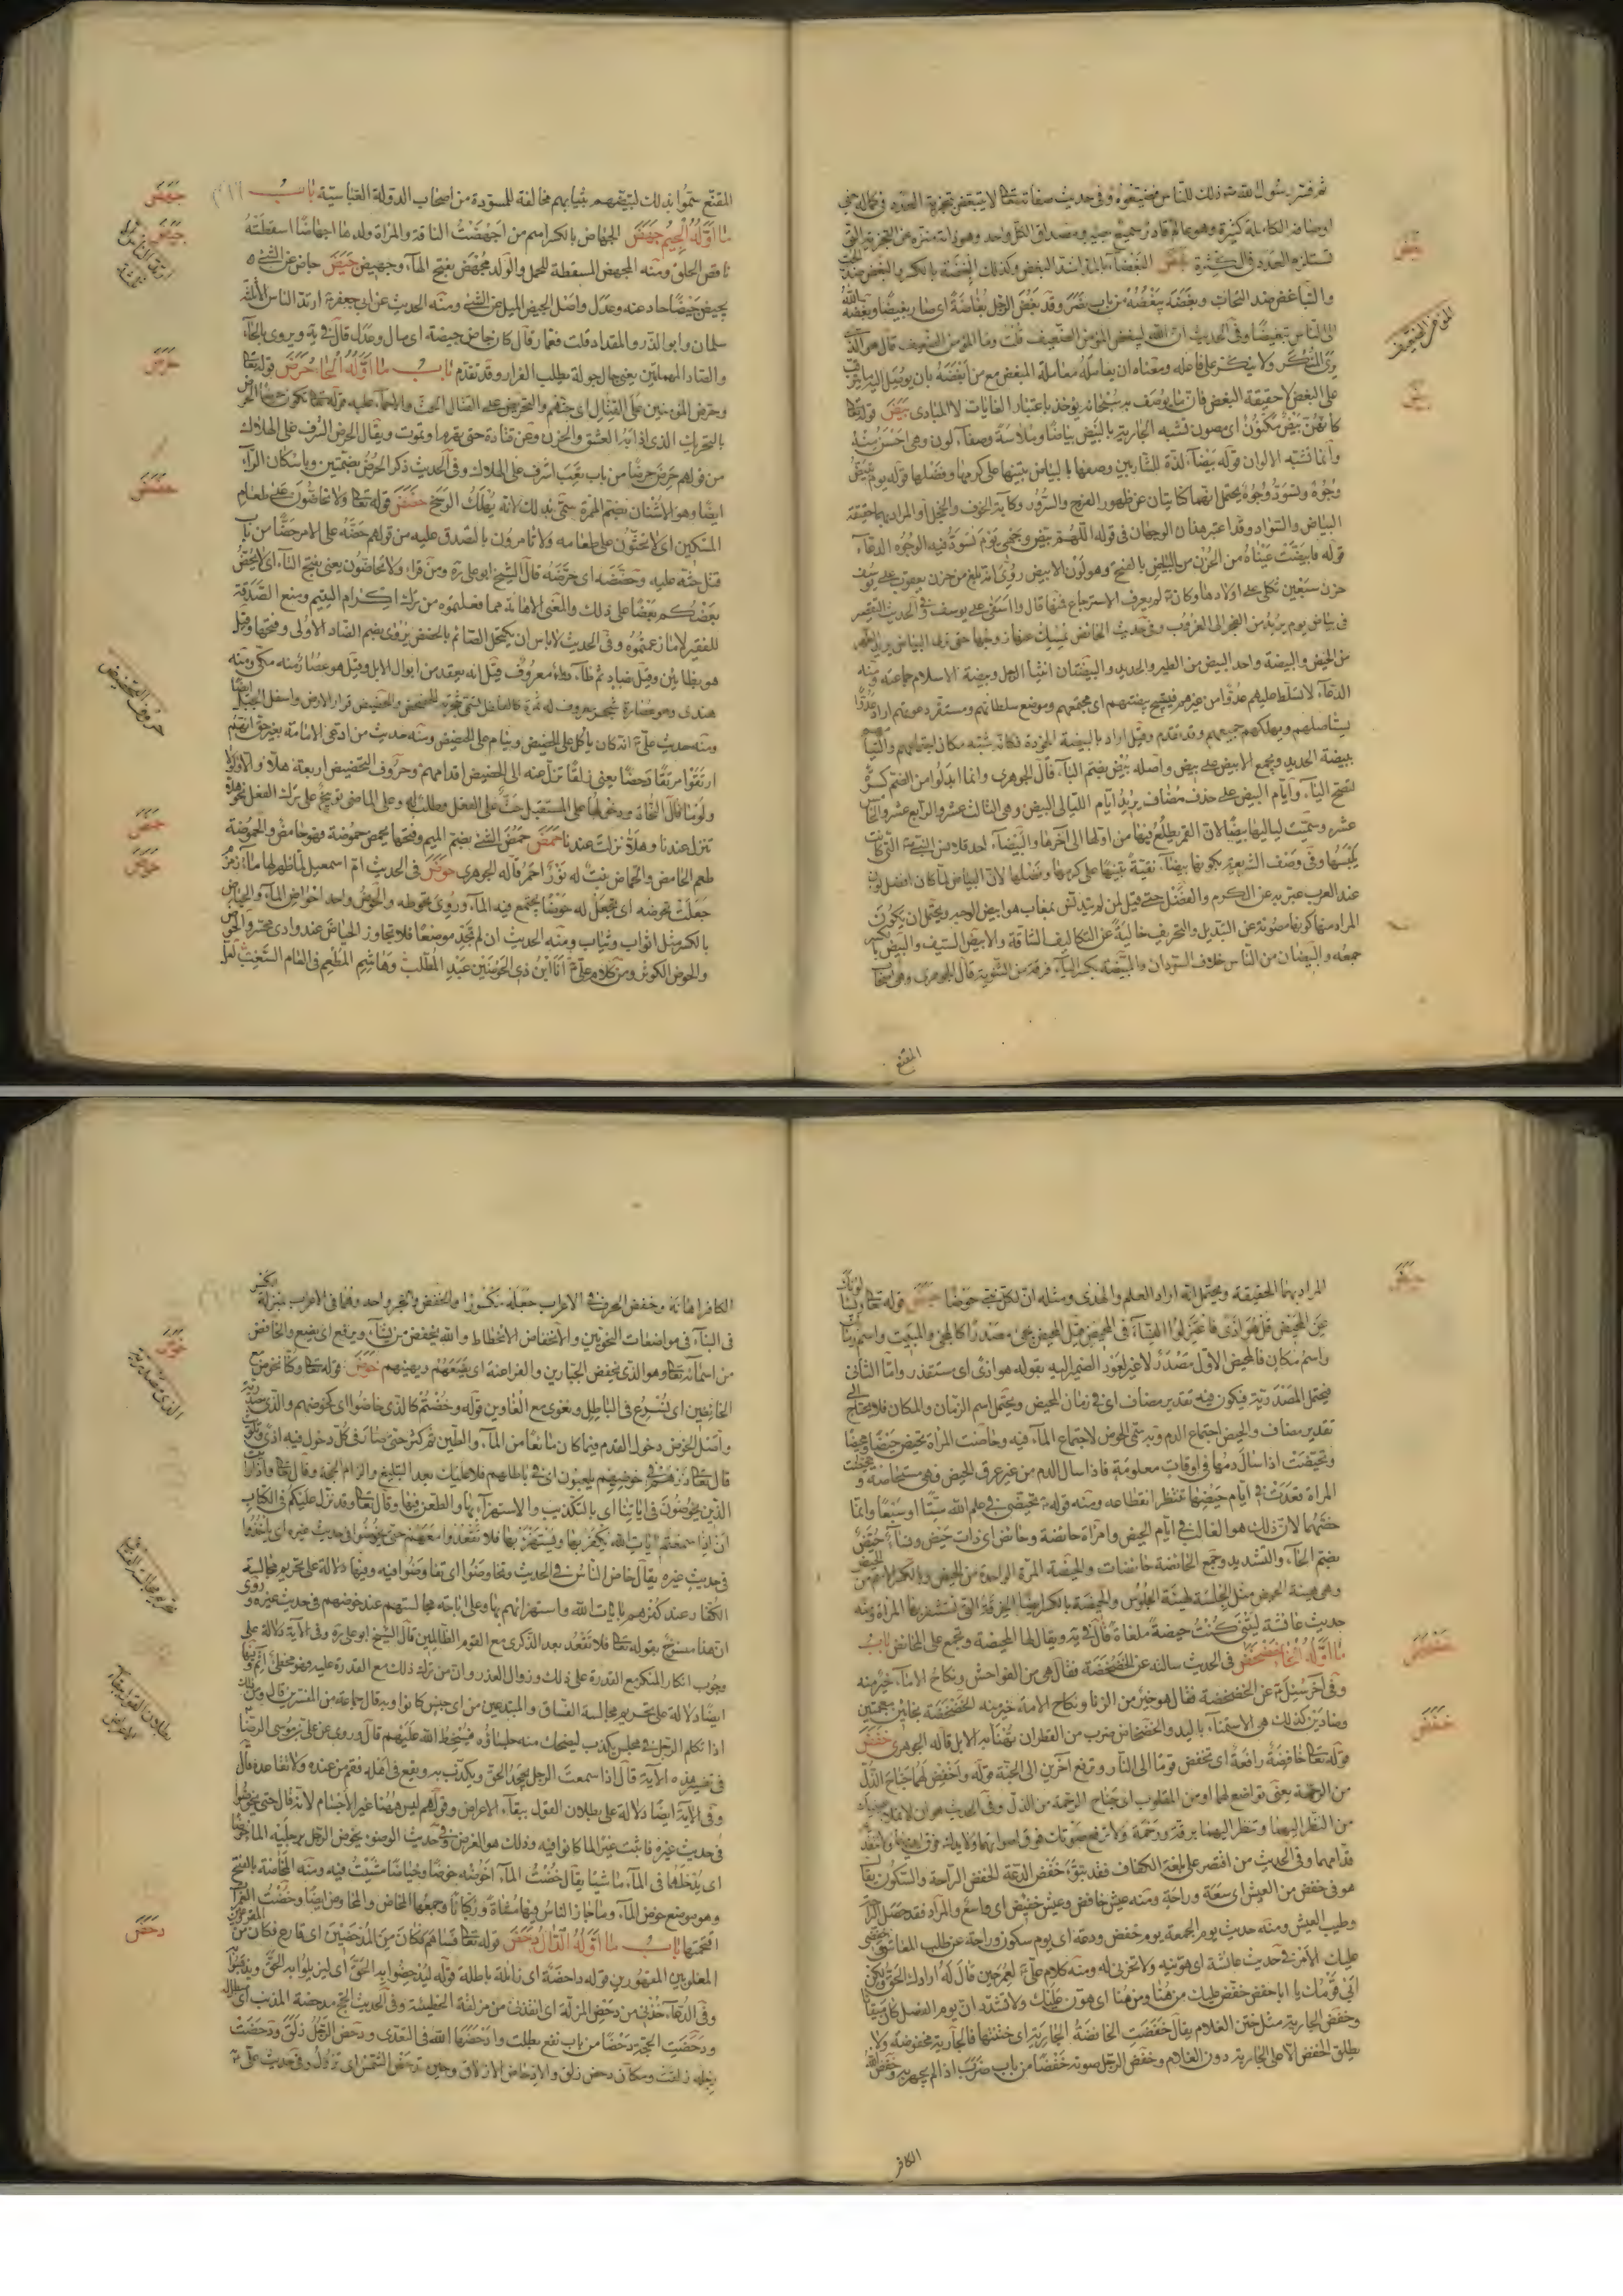 ثم فسر رسول الله ذلك للناس فضيعوه وفى حديث صفاته تعالى لا يتبعض بتجزية العدد فى كماله يعنى
اوصافه الكاملة كثيرة وهو عالم قادر سميع بصير ومصداق الكل واحد وهو ذاته منزه عن التجزية التى
تستلزم العدد والكثرة بغض البغضاء بالمد اشد البغض وكذلك البغضة بالكسر والبغض ضد الحب
والتباغض ضد التحاب وبغضه يبغضه من باب وقد بغض الرجل بغاضة اى صار بغيضا وبغضه الله
الى الناس تبغيضا وفى الحديث ان الله ليبغض المؤمن الضعيف قلت وما المؤمن الضعيف قال هو الذى
يرى المنكر ولا ينكر على فاعله ومعناه ان يعامله معاملة المبغض مع من ابغضه بان يوصل اليه ما يترتب
على البغض لا حقيقة البغض فان ما يوصف به سبحانه يؤخذ باعتبار الغايات لا المبادى بيض قوله تعالى
كانهن بيض مكنون اى مصون تشبه الجارية بالبيض بياضا وملاسة وصفاء لون وهى احسن منه
وانما تشبه الالوان قوله بيضاء لذة للشاربين وصفها بالبياض تنبيها على كرمها وفضلها قوله يوم تبيض
وجوه وتسود وجوه يحتمل انهما كنايتان عن ظهور الفرح والسرور وكآبة الخوف والخجل او المراد بهما حقيقة
البياض والسواد وقد اعتبر هذان الوجهان فى قوله اللهم بيض وجهى يوم تسود فيه الوجوه الدعاء
قوله وابيضت عيناه من الحزن من البياض بالفتح وهو لون الابيض روى انه بلغ من حزن يعقوب على يوسف
حزن سبعين ثكلى على اولادها وكان لم يعرف الاسترجاع فمنها قال وا اسفى على يوسف وفى الحديث
فى بياض يوم يريد من الفجر الى الغروب وفى حديث الحائض يمسك عنها زوجها حتى ترى البياض يريد الطهر
من الحيض والبيضة واحد البيض من الطير والحديد والبيضتان انثيا الرجل وبيضة الاسلام جماعته ومنه
الدعاء لا تسلط عليهم عدوا من غيرهم فيستبيح بيضتهم اى مجتمعهم وموضع سلطانهم ومستقر دعوتهم اراد عدوا
يستاصلهم ويهلكهم جميعهم وقد تقدم وقيل اراد بالبيضة الخوذة فكانه شبه مكان اجتماعهم والتيامهم
ببيضة الحديد ويجمع الابيض على بيض واصله بيض بضم الباء قال الجوهرى وانما ابدلوا من الضم كسرة
لتصح الياء وايام البيض على حذف مضاف يريد ايام الليالى البيض وهى الثالث عشر والرابع عشر والخامس
عشر وسميت لياليها بيضا لان القمر يطلع فيها من اولها الى آخرها والبيضاء احد قلانس النبى التى كان
يلبسها وفى وصف الشريعة بكونها بيضاء نقية تنبيها على كرمها وفضلها لان البياض لما كان افضل لون
عند العرب عبر به عن الكرم والفضل حتى قيل لمن لم يتدنس بمعاب هو ابيض الوجه ويحتمل ان يكون
المراد منها كونها مصونة عن التبديل والتحريف خالية عن التكاليف الشاقة والابيض السيف والبيض بالكسر
جمعه والبيضان من الناس خلاف السودان والمبيضة بكسر الياء فرقة من الثنوية قال الجوهرى وهم اصحاب
المقنع
المؤمن الضعيف
بغض
بيض
المقنع سموا بذلك لتبييضهم ثيابهم مخالفة للمسودة من اصحاب الدولة العباسية باب
ما اوله الجيم جهض الجهاض بالكسر اسم من اجهضت الناقة والمراة ولدها اجهاضا اسقطته
ناقص الخلق ومنه المجهض المسقطة للحمل والولد مجهض بفتح الهاء وجهيض جيض جاض عن الشئ
يجيض جيضا حاد عنه وعدل واصل الجيض الميل عن الشئ ومنه الحديث عن ابى جعفر ارتد الناس الا ثلثة
سلمان وابو الذر والمقداد قلت فعمار قال كان جاض جيضة اى مال وعدل قال فى ية ويروى بالحاء
والصاد المهملتين يعنى جال جولة يطلب الفرار وقد تقدم باب ما اوله الحا حرض قوله تعالى
وحرض المؤمنين على القتال اى حثهم والتحريض على القتال الحث والاحماء عليه قوله تعالى تكون حرضا الحرض
بالتحريك الذى اذابه العشق والحزن وعن قتادة حتى يهرم او يموت ويقال الحرض المشرف على الهلاك
من قولهم حرض حرضا من باب تعب اشرف على الهلاك وفى الحديث ذكر الحرض بضمتين وباسكان الراء
ايضا وهو الاشنان بضم الهمزة سمى بذلك لانه يهلك الوسخ حضض قوله تعالى ولا تحاضون على طعام
المسكين اى لا تحثون على طعامه ولا تامرون بالتصدق عليه من قولهم حضه على الامر حضا من باب
قتل حثه عليه وحضضه اى حرضه قال الشيخ ابو على ره ومن قرا ولا تحاضون يعنى بفتح التاء اى لا يحض
بعضكم بعضا على ذلك والمعنى الاهانة مما فعلتموه من ترك اكرام اليتيم ومنع الصدقة
للفقير لا ما زعمتموه وفى الحديث لا باس ان يكتحل الصائم بالحضض يروى بضم الضاد الاولى وفتحها وقيل
هو بظائين وقيل ضاد ثم ظاء دواء معروف قيل انه يعقد من ابوال الابل وقيل هو عصارة منه مكى ومنه
هندى وهو عصارة شجر معروف له ثمرة كالفلفل تسمى شجرته الحضض والحضيض قرار الارض واسفل الجبل ايضا
ومنه حديث على انه كان ياكل على الحضيض وينام على الحضيض ومنه حديث من ادعى الامامة بغير حق انهم
ارتقوا مرتقا دحضا يعنى زلقا تزل عنه الى الحضيض اقدامهم وحروف التحضيض اربعة هلا والا ولولا
ولوما قال النحاة ودخولها على المستقبل حث على الفعل وطلب له وعلى الماضى توبيخ على ترك الفعل نحو هلا
تنزل عندنا وهلا نزلت عندنا حمض حمض الشئ بضم الميم وفتحها يحمض حموضة فهو حامض والحموضة
طعم الحامض والحماض نبت له نور احمر قاله الجوهرى حوض فى الحديث ام اسمعيل لما ظهر لها ماء زمزم
جعلت تحوضه اى تجعل له حوضا يجتمع فيه الماء وروى تحوطه والحوض واحد احواض الماء والحياض
بالكسر مثل اثواب وثياب ومنه الحديث ان لم تجد موضعا فلا تجاوز الحياض عند وادى محسر والحوض
والحوض الكوثر ومن كلام على انا ابن ذى الحوضين عبد المطلب وهاشم المطعم فى العام السغب لعل
جهض
جيض
حرض
حضض
حروف التحضيض
حمض
حوض
المراد بهما الحقيقة ويحتمل انه اراد العلم والهدى ومثله ان لكل نبى حوضا حيض قوله تعالى ويسئلونك
عن المحيض قل هو اذى فاعتزلوا النساء فى المحيض قيل المحيض يجئ مصدرا كالمجئ والمبيت واسم زمان
واسم مكان فالمحيض الاول مصدر لا غير لعود الضمير اليه بقوله هو اذى اى مستقذر واما الثانى
فيحتمل المصدرية فيكون فيه تقدير مضاف اى فى زمان المحيض ويحتمل اسم الزمان والمكان فلا يحتاج الى
تقدير مضاف والحيض اجتماع الدم وبه سمى الحوض لاجتماع الماء فيه وحاضت المراة تحيض حيضا ومحيضا
وتحيضت اذا سال دمها فى اوقات معلومة فاذا سال الدم من غير عرق المحيض فهى مستحاضة وتحيضت
المراة قعدت فى ايام حيضها تنتظر انقطاعه ومنه قوله تحيضى فى علم الله ستا او سبعا وانما
خصهما لان ذلك هو الغالب فى ايام الحيض وامراة حائضة وحائض اى ذات حيض ونساء حيض
بضم الحاء والتشديد وجمع الحائضة حائضات والحيضة المرة الواحدة من الحيض وبالكسر الاسم من الحيض
وهى هيئة الحيض مثل الجلسة لهيئة الجلوس والحيضة بالكسر ايضا الخرقة التى تستثفر بها المراة ومنه
حديث عائشة ليتنى كنت حيضة ملقاة قال فى ية ويقال لها المحيضة وتجمع على المحائض باب
ما اوله الخا خضخض فى الحديث سالته عن الخضخضة فقال هى من الفواحش ونكاح الاماء خير منه
وفى آخر سئل عن الخضخضة فقال هو خير من الزنا ونكاح الامة خير منه الخضخضة بخائين معجمتين
وضادين كذلك هو الاستمناء باليد والخضخاض ضرب من القطران تهنأ به الابل قاله الجوهرى خفض
قوله تعالى خافضة رافعة اى تخفض قوما الى النار وترفع آخرين الى الجنة قوله واخفض لهما جناح الذل
من الرحمة يعنى تواضع لهما او من المقلوب اى جناح الرحمة من الذل وفى الحديث هو ان لا تملا عينيك
من النظر اليهما وتنظر اليهما برقة ورحمة ولا ترفع صوتك فوق اصواتهما ولا يديك فوق ايديهما ولا تتقدم
قدامهما وفى الحديث من اقتصر على بلغة الكفاف فقد تبوء خفض الدعة الخفض الراحة والسكون يقال
هو فى خفض من العيش اى سعة وراحة ومنه عيش خافض وعيش خفيض اى واسع والمراد فقد حصل الراحة
وطيب العيش ومنه حديث يوم الجمعة يوم خفض ودعة اى يوم سكون وراحة عن طلب المعاش
عليك الامر فى حديث عائشة اى هونيه ولا تحزنى له ومنه كلام على لعمر حين قال له اراد لك الحق ولكن
ابى قومك يا ابا حفص خفض عليك من هنا ومن هنا اى هون عليك ولا تشتد ان يوم الفصل كان ميقاتا
وخفض الجارية مثل ختن الغلام يقال خفضت الخافضة الجارية اى ختنتها فالجارية مخفوضة ولا
يطلق الخفض الا على الجارية دون الغلام وخفض الرجل صوته خفضا من باب ضرب اذا لم يجهر به وخفض الله
الكافر
حيض
خضخض
خفض
الكافر اهانة وخفض الحرف فى الاعراب جعله مكسورا والخفض والجر واحد وهما فى الاعراب بمنزلة الكسر
فى البناء فى مواضعات النحويين والانخفاض الانحطاط والله يخفض من يشاء ويرفع اى يضع والخافض
من اسمائه تعالى وهو الذى يخفض الجبارين والفراعنة اى يضعهم ويهينهم خوض قوله تعالى وكنا نخوض مع
الخائضين اى نشرع فى الباطل ونغوى مع الغاوين قوله وخضتم كالذى خاضوا اى كخوضهم والذى مصدرية
واصل الخوض دخول القدم فيما كان مائعا من الماء والطين ثم كثر حتى صار فى كل دخول فيه اذى وتلويث
قال تعالى ذرهم فى خوضهم يلعبون اى فى باطلهم فلا عليك بعد التبليغ والزام الحجة وقال تعالى واذا رايت
الذين يخوضون فى اياتنا اى بالتكذيب والاستهزاء بها والطعن فيها وقال تعالى وقد نزل عليكم فى الكتاب
ان اذا سمعتم ايات الله يكفر بها ويستهزء بها فلا تقعدوا معهم حتى يخوضوا فى حديث غيره اى ياخذوا
فى حديث غيره يقال خاض الناس فى الحديث وتخاوضوا اى تفاوضوا فيه وفيها دلالة على تحريم مجالسة
الكفار عند كفرهم بايات الله واستهزائهم بها وعلى اباحة مجالستهم عند خوضهم فى حديث غيره وروى
ان هذا منسوخ بقوله تعالى فلا تقعد بعد الذكرى مع القوم الظالمين قال الشيخ ابو على ره وفى الآية دلالة على
وجوب انكار المنكر مع القدرة على ذلك وزوال العذر وان من ترك ذلك مع القدرة عليه فهو مخطئ آثم وفيها
ايضا دلالة على تحريم مجالسة الفساق والمبتدعين من اى جنس كانوا وبه قال جماعة من المفسرين قالوا ومن ذلك
اذا تكلم الرجل فى مجلس بكذب ليضحك منه جلساؤه فيسخط الله عليهم قال وروى عن على بن موسى الرضا
فى تفسير هذه الآية قال اذا سمعت الرجل يجحد الحق ويكذب به ويقع فى اهله فقم من عنده ولا تقاعده قال
وفى الآية ايضا دلالة على بطلان القول ببقاء الاعراض وقولهم ليس ههنا غير الاجسام لانه قال حتى يخوضوا
فى حديث غيره فاثبت غيرا لما كانوا فيه وذلك هو العرض وفى حديث الوضوء يخوض الرجل برجليه الماء خوضا
اى يدخلهما فى الماء ماشيا يقال خضت الماء اخوضه خوضا وخياضا مشيت فيه ومنه المخاضة بالفتح
وهو موضع خوض الماء وما جاز الناس فيها مشاة وركبانا وجمعها المخاض والمخاوض ايضا وخضت الغمرات
اقتحمتها باب ما اوله الدال دحض قوله تعالى فساهم فكان من المدحضين اى قارع فكان من المقروعين
المغلوبين المقهورين قوله داحضة اى زائلة باطلة قوله ليدحضوا به الحق اى ليزيلوا به الحق ويذهبوا به
وفى الدعاء خذنى من دحض المزلة اى انقذنى من مزلقة الخطيئة وفى الحديث الحج مدحضة الذنب اى
ودحضت الحجة دحضا من باب نفع بطلت وادحضها الله فى التعدى ودحض الرجل زلق ودحضت
رجله زلقت ومكان دحض زلق والادحاض الازلاق وحين تدحض الشمس اى تزول وفى حديث على
خوض
الذى مصدرية
بطلان القول ببقاء الاعراض
دحض